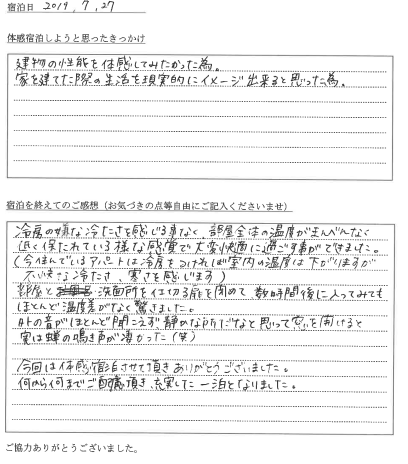 宿泊日 2019.7.27
体感宿泊しようと思ったきっかけ
建物の性能を体感してみたかった為。
家を建てた際の生活を現実的にイメージ出来ると思った為。
宿泊を終えてのご感想(お気づきの点等自由にご記入くださいませ)
冷房の様な冷たさを感じる事なく、部屋全体の温度がまんべんなく
近く保たれている様な感覚で大変快適に過ごす事ができました。
(今住んでいるアパートは冷房をつければ室内の温度は下がりますが
不快な冷たさ、寒さを感じます)
部屋と洗面所を仕切る扉を閉めて、数時間後に入ってみても
ほとんど温度差がなく驚きました。
外の音がほとんど聞こえず静かな所だなと思って窓を開けると
実は蝉の鳴き声が凄かった(笑)
今回は体感宿泊させて頂きありがとうございました。
何から何までご用意頂き、充実した一泊となりました。
ご協力ありがとうございました。